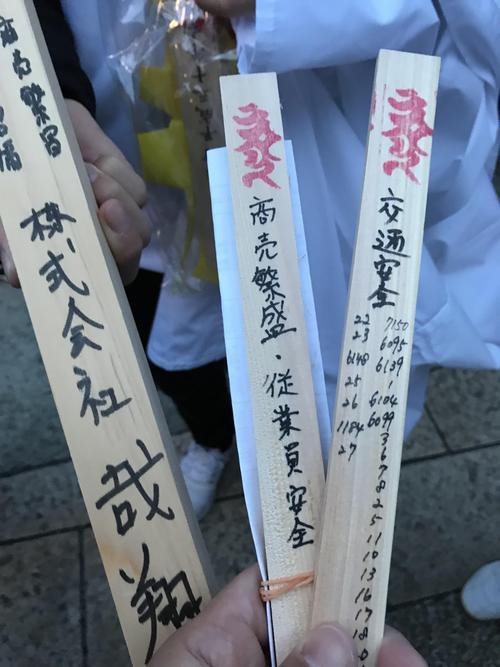 商売繁
株式会社 哉翔
商売繁盛・従業員安全
交通安全
7150
6095
6139
1
6104
6099
3
6
7
8
2
5
11
10
13
16
17
18
22
23
6148
25
26
1184
27